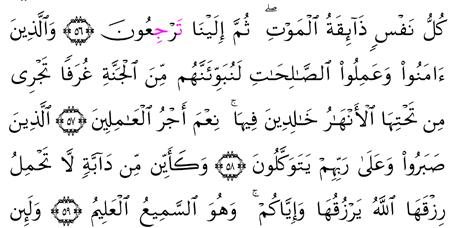 كُلُّ نَفْسٖ ذَآئِقَةُ اُ۬لْمَوْتِۖ ثُمَّ إِلَيْنَا تَرْجِعُونَ ۝٥٦ وَالَّذِينَ
ءَامَنُواْ وَعَمِلُواْ الصَّٰلِحَٰتِ لَنُبَوِّئَنَّهُم مِّنَ الْجَنَّةِ غُرَفٗا تَجْرِى
مِن تَحْتِهَا الْأَنْهَٰرُ خَٰلِدِينَ فِيهَاۚ نِعْمَ أَجْرُ الْعَٰمِلِينَ ۝٥٧ الَّذِينَ
صَبَرُواْ وَعَلَىٰ رَبِّهِمْ يَتَوَكَّلُونَ ۝٥٨ وَكَأَيِّن مِّن دَآبَّةٖ لَّا تَحْمِلُ
رِزْقَهَا اللَّهُ يَرْزُقُهَا وَإِيَّاكُمْۚ وَهُوَ السَّمِيعُ الْعَلِيمُ ۝٥٩ وَلَئِن